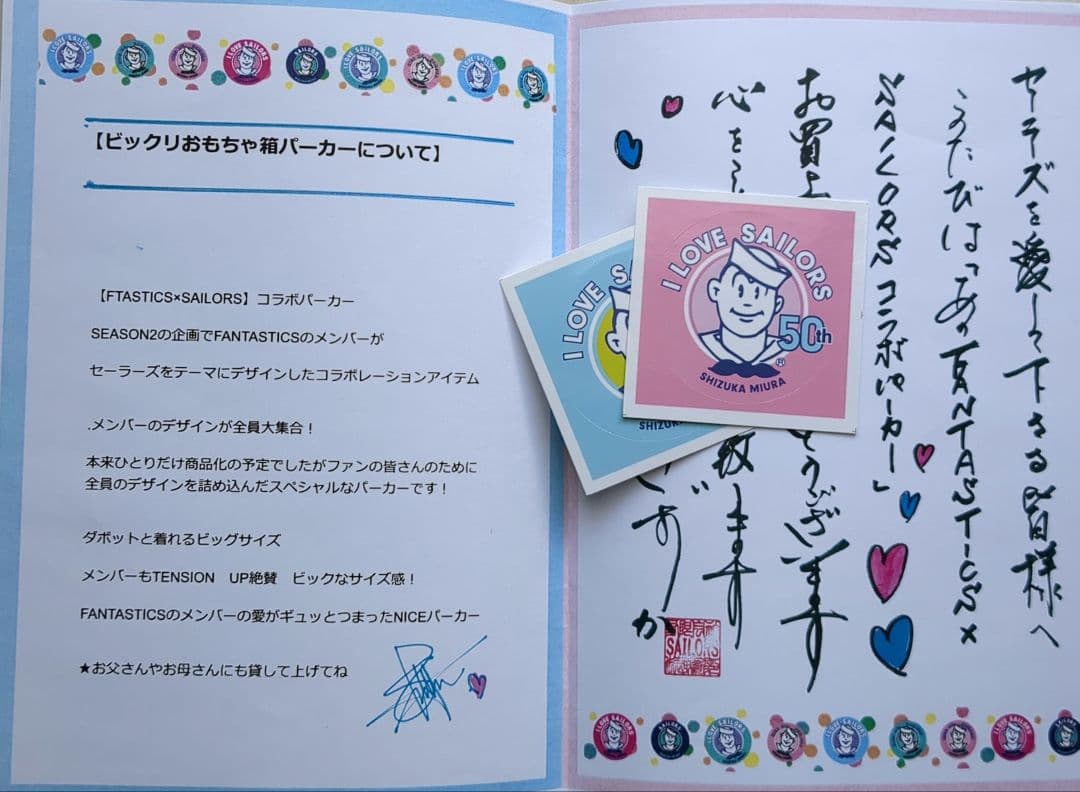 【ビックリおもちゃ箱パーカーについて】
【FTASTICS×SAILORS】コラボパーカー
SEASON2の企画でFANTASTICSのメンバーが
セーラーズをテーマにデザインしたコラボレーションアイテム
.メンバーのデザインが全員大集合！
本来ひとりだけ商品化の予定でしたがファンの皆さんのために
全員のデザインを詰め込んだスペシャルなパーカーです！
ダボットと着れるビッグサイズ
メンバーもTENSION　UP絶賛　ビックなサイズ感！
FANTASTICSのメンバーの愛がギュッとつまったNICEパーカー
★お父さんやお母さんにも貸して上げてね
セーラーズを愛して下さる皆様へ
このたびは「
FANTASTICS×
SAILORSコラボパーカー」
お買上
とうございます
心を
致します
しずか
SAILORS
I LOVE SAILORS
50th
®
SHIZUKA MIURA
I LOVE SA
SHIZUK